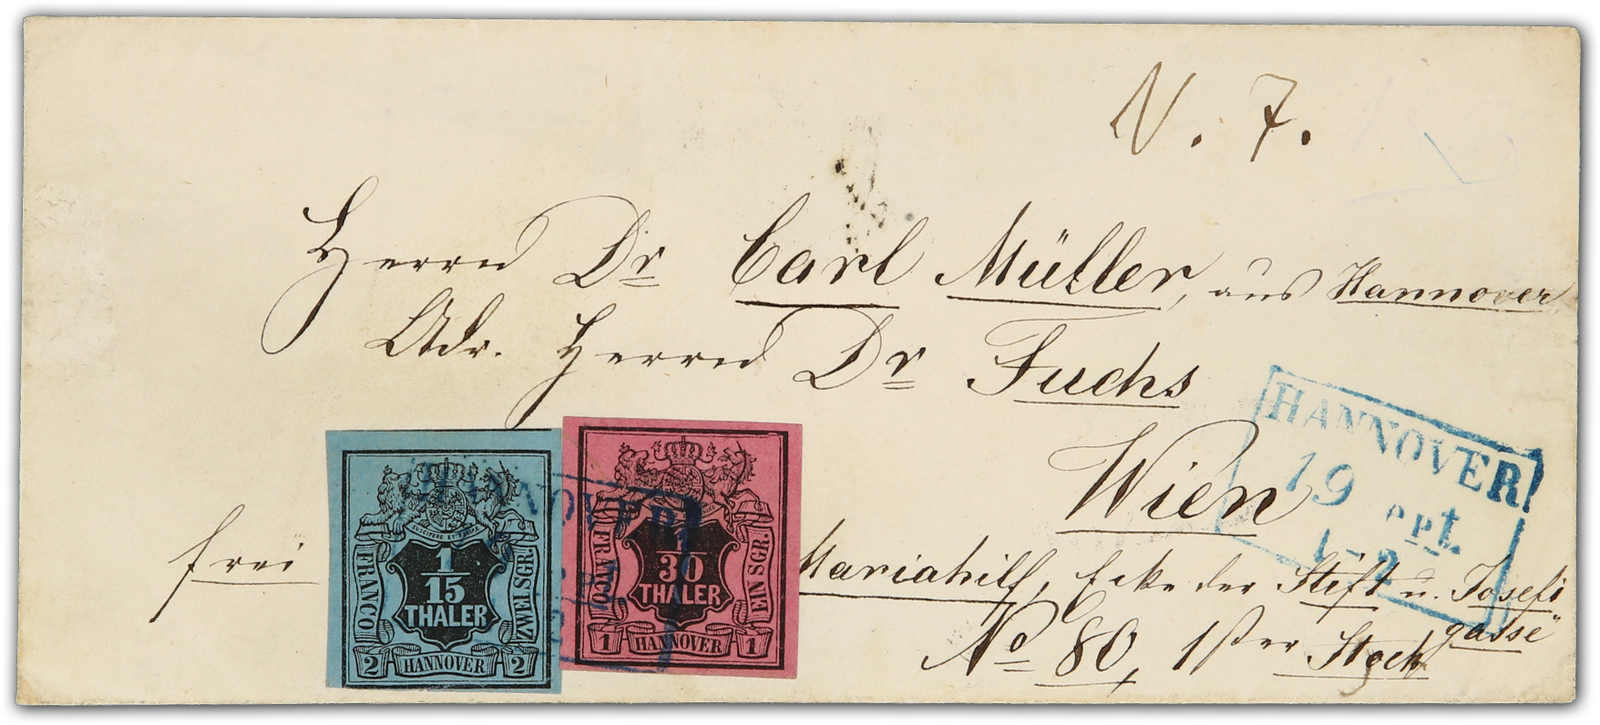 N. 7.
Herrn Dr Carl Müller, aus Hannover
Adr. Herrn Dr Fuchs
Wien
frei
Mariahilf, Ecke der Stift u. Josefi
gasse
No 80, 1ster Stock
HANNOVER
19 ept.
1-2
HANNOVER
FRANCO
1/15
THALER
ZWEI SGR.
2 HANNOVER 2
FRANCO
1/30
THALER
EIN SGR.
1 HANNOVER 1